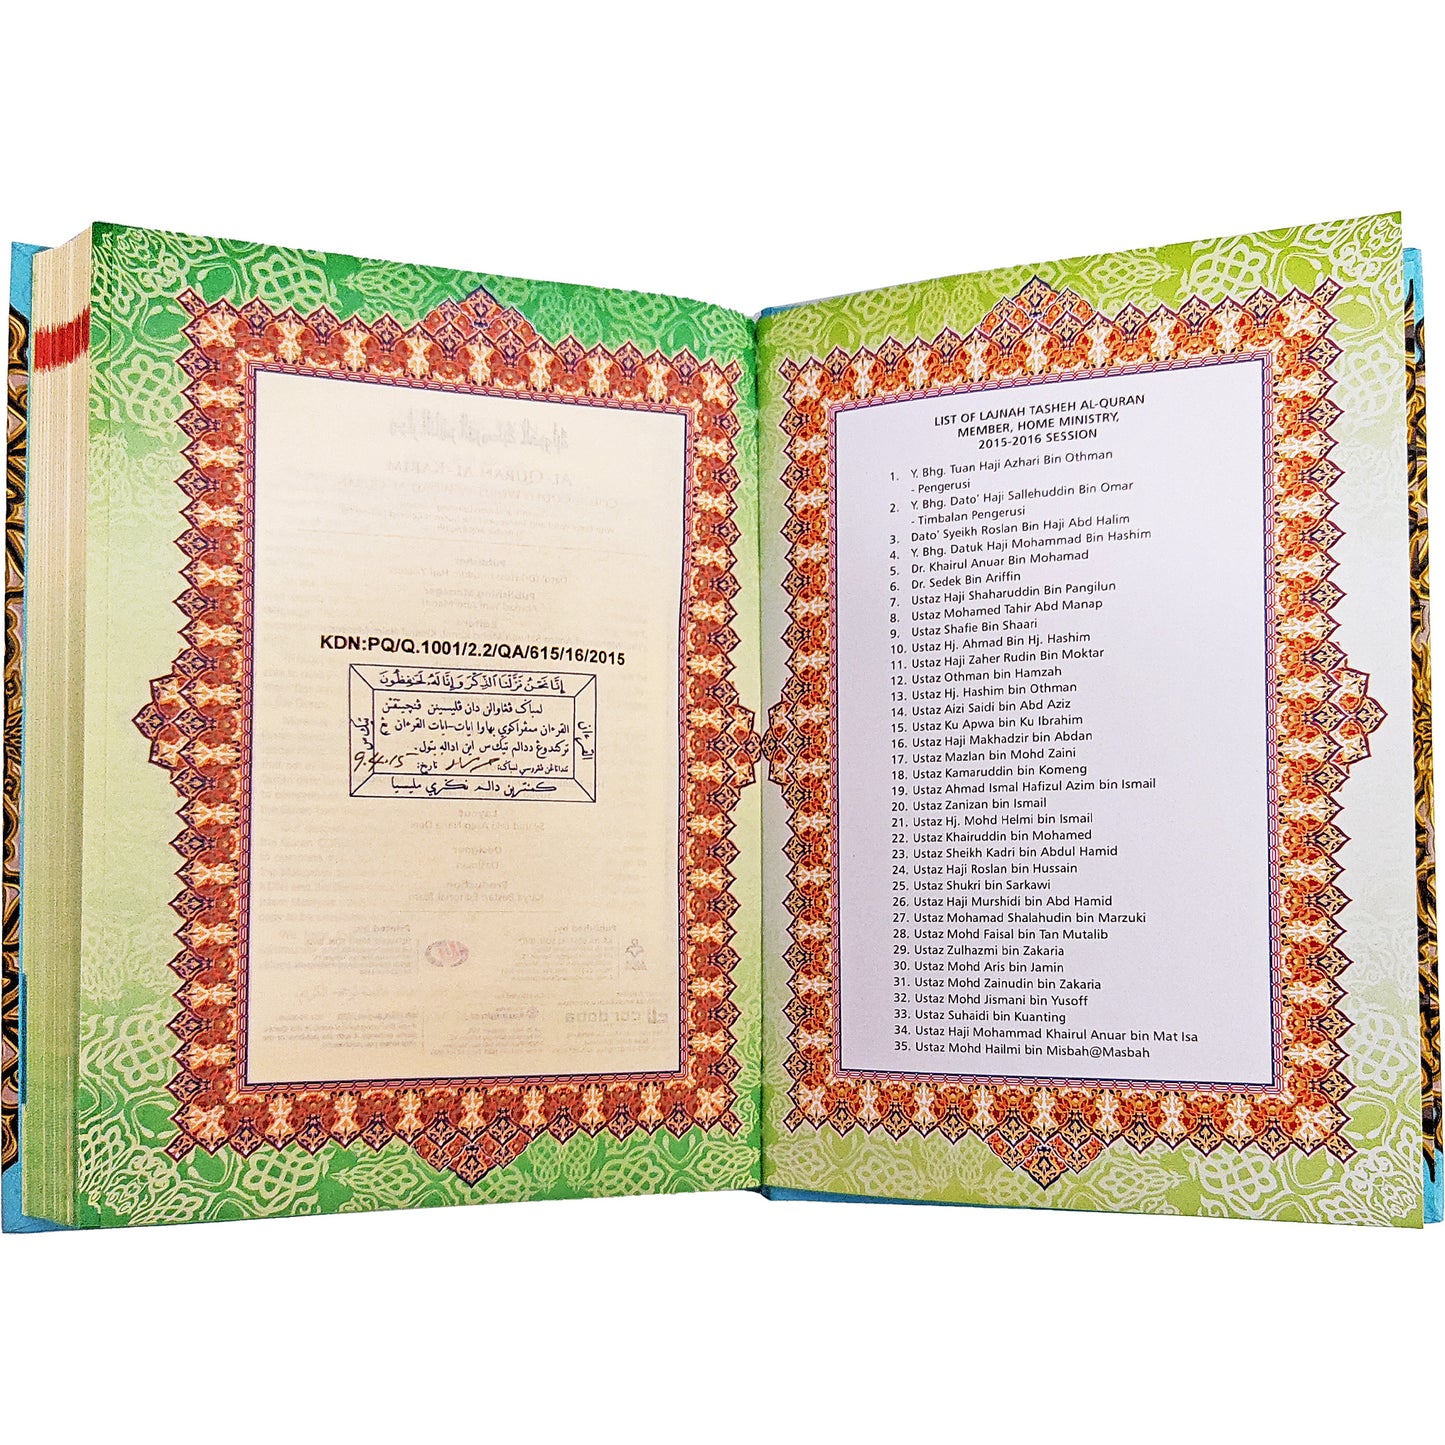 KDN:PQ/Q.1001/2.2/QA/615/16/2015
إِنَّا نَحْنُ نَزَّلْنَا الذِّكْرَ وَإِنَّا لَهُ لَحَافِظُونَ
لمباݢ ڤڠاوالن دان ڤليسينن ڤنچيتقن
القرءان مڠقراکوي بهاوا ايات-ايات القرءان يڠ
ترکندوڠ ددالم تيک س اين اداله بتول.
تاريخ: 9.4.15
کمنترين دالم نݢري مليسيا
القرءان
LIST OF LAJNAH TASHEH AL-QURAN
MEMBER, HOME MINISTRY,
2015-2016 SESSION
1. Y. Bhg. Tuan Haji Azhari Bin Othman
- Pengerusi
2. Y. Bhg. Dato' Haji Sallehuddin Bin Omar
- Timbalan Pengerusi
3. Dato' Syeikh Roslan Bin Haji Abd Halim
4. Y. Bhg. Datuk Haji Mohammad Bin Hashim
5. Dr. Khairul Anuar Bin Mohamad
6. Dr. Sedek Bin Ariffin
7. Ustaz Haji Shaharuddin Bin Pangilun
8. Ustaz Mohamed Tahir Abd Manap
9. Ustaz Shafie Bin Shaari
10. Ustaz Hj. Ahmad Bin Hj. Hashim
11. Ustaz Haji Zaher Rudin Bin Moktar
12. Ustaz Othman bin Hamzah
13. Ustaz Hj. Hashim bin Othman
14. Ustaz Aizi Saidi bin Abd Aziz
15. Ustaz Ku Apwa bin Ku Ibrahim
16. Ustaz Haji Makhadzir bin Abdan
17. Ustaz Mazlan bin Mohd Zaini
18. Ustaz Kamaruddin bin Komeng
19. Ustaz Ahmad Ismal Hafizul Azim bin Ismail
20. Ustaz Zanizan bin Ismail
21. Ustaz Hj. Mohd Helmi bin Ismail
22. Ustaz Khairuddin bin Mohamed
23. Ustaz Sheikh Kadri bin Abdul Hamid
24. Ustaz Haji Roslan bin Hussain
25. Ustaz Shukri bin Sarkawi
26. Ustaz Haji Murshidi bin Abd Hamid
27. Ustaz Mohamad Shalahudin bin Marzuki
28. Ustaz Mohd Faisal bin Tan Mutalib
29. Ustaz Zulhazmi bin Zakaria
30. Ustaz Mohd Aris bin Jamin
31. Ustaz Mohd Zainudin bin Zakaria
32. Ustaz Mohd Jismani bin Yusoff
33. Ustaz Suhaidi bin Kuanting
34. Ustaz Haji Mohammad Khairul Anuar bin Mat Isa
35. Ustaz Mohd Hailmi bin Misbah@Masbah